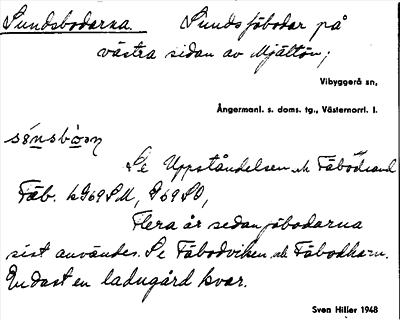 Sundsbodarna. Sunds fäbodar på
västra sidan av Mjältön;
Vibyggerå sn,
Ångermanl. s. doms. tg., Västernorrl. l.
Se Uppståndelsen och Fäbodsand
Fäb.
Flera år sedan fäbodarna
sist användes. Se Fäbodviken och Fäbodhamn.
Endast en ladugård kvar.
Sven Hiller 1948